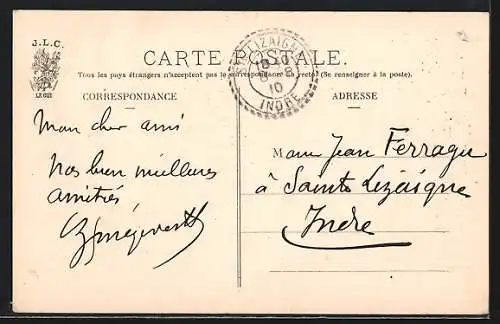 J.L.C.
LE GUI
CARTE POSTALE.
Tous les pays étrangers n'acceptent pas la correspondance au recto. (Se renseigner à la poste).
CORRESPONDANCE
ADRESSE
INDRE
10
Mon cher ami
Nos bien meilleures
amitiés
M Jean Ferragu
à Sainte Lizaigne
Indre